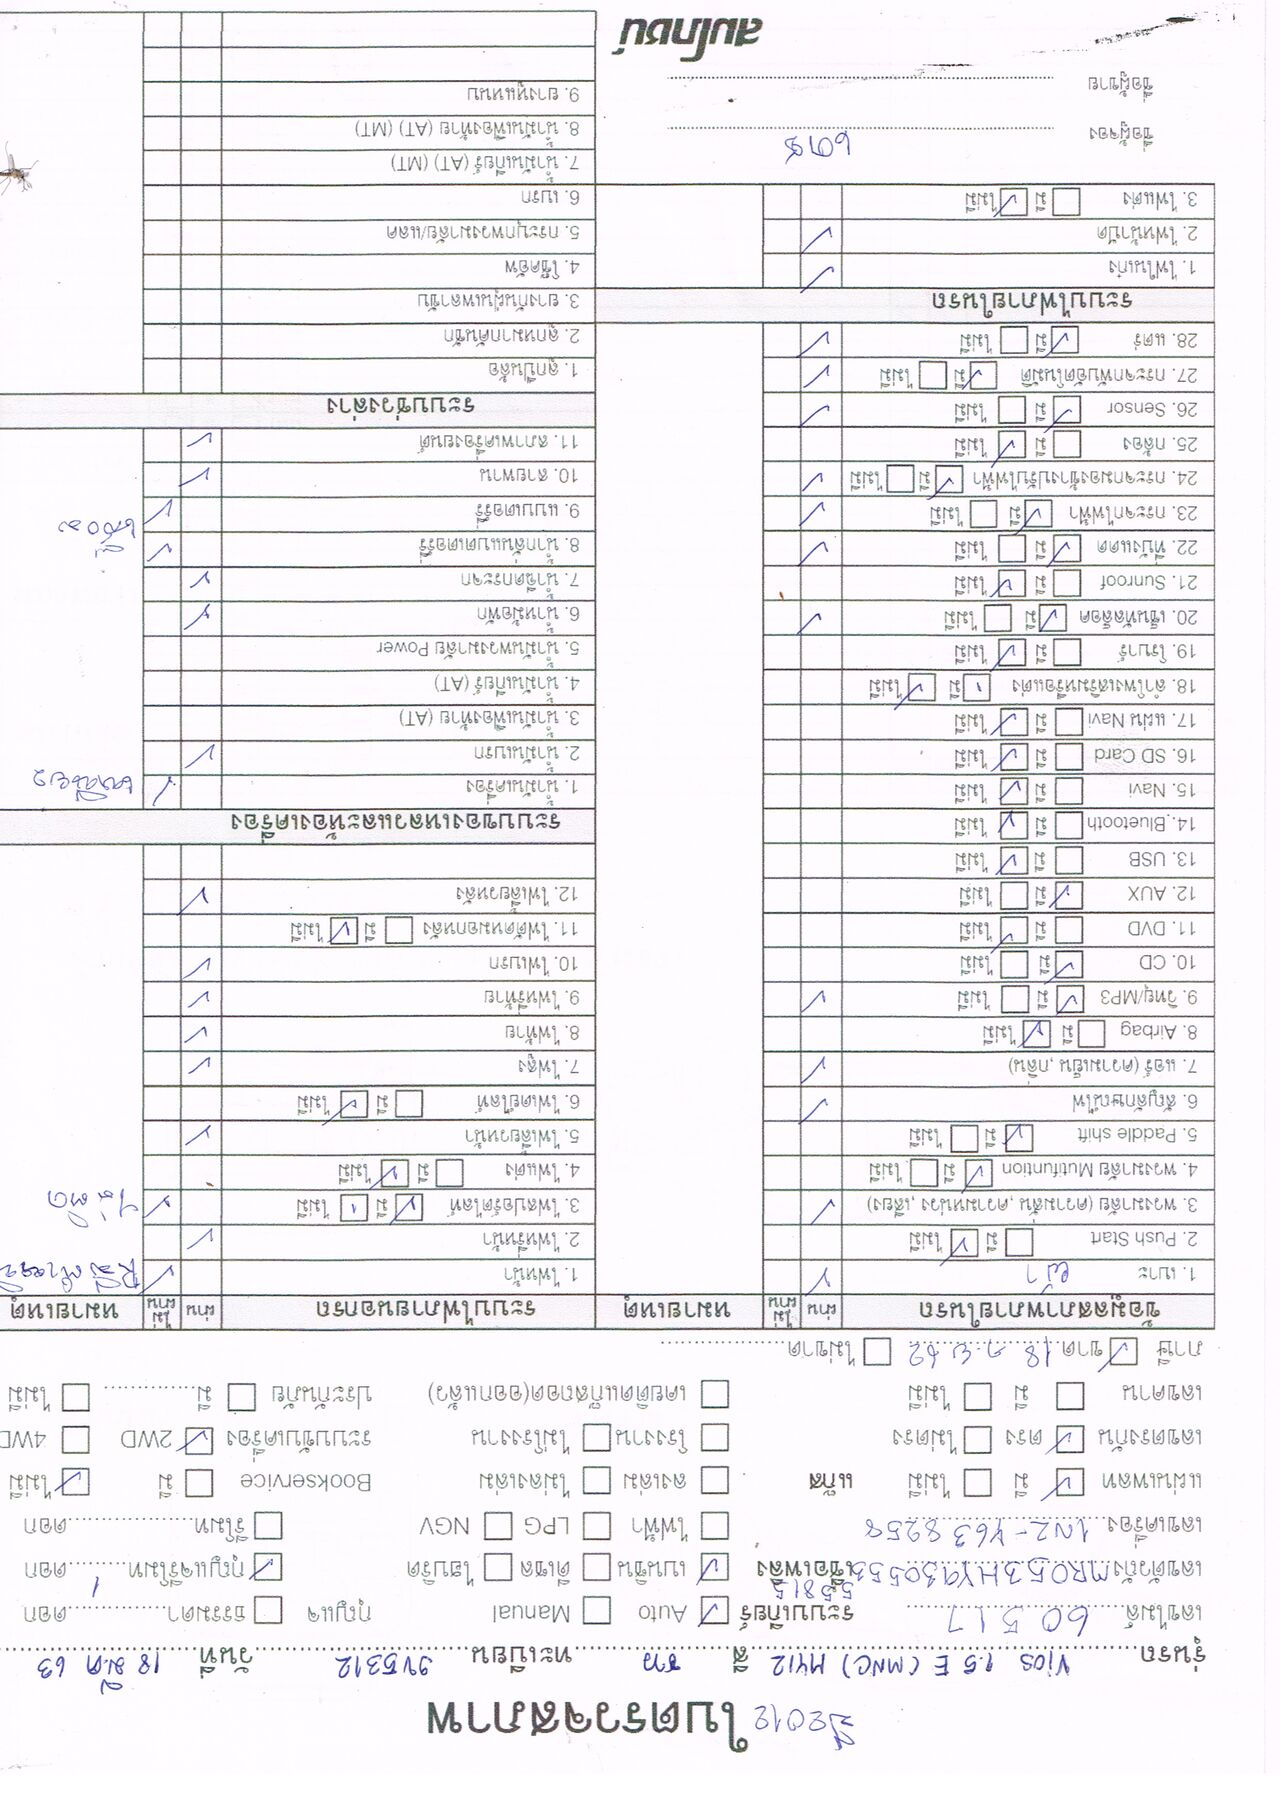 ใบตรวจสภาพ ปี2012
รุ่นรถ Vios 1.5 E (MNC) MY12 สี ทะเบียน วันที่ 18 ม.ค 63
เลขไมล์ 60517 ระบบเกียร์ Auto Manual กุญแจ ธรรมดา ดอก
55815
เลขตัวถัง MR053HY930 เชื้อเพลิง เบนซิน ดีเซล ไฮบริด กุญแจรีโมท 1 ดอก
เลขเครื่อง 1NZ-Y638258 ไฟฟ้า LPG NGV รีโมท ดอก
แผ่นเพลท มี ไม่มี แก๊ส ลงเล่ม ไม่ลงเล่ม Bookservice มี ไม่มี
เลขตรงกัน ตรง ไม่ตรง โรงงาน ไม่โรงงาน ระบบขับเครื่อง 2WD 4WD
เลขคาน มี ไม่มี เคยติดแก๊สถอด(ออกแล้ว) ประกันภัย มี ไม่มี
ภาษี ขาด 18 ก.ย 62 ไม่ขาด
ข้อมูลสภาพภายในรถ ผ่าน ไม่ผ่าน หมายเหตุ
1. เบาะ ผ้า
2. Push Start มี ไม่มี
3. พวงมาลัย (ความสั่น, ความหน่วง, เสียง)
4. พวงมาลัย Mutifuntion มี ไม่มี
5. Paddle shift มี ไม่มี
6. สัญลักษณ์ไฟ
7. แอร์ (ความเย็น, กลิ่น)
8. Airbag มี ไม่มี
9. วิทยุ/MP3 มี ไม่มี
10. CD มี ไม่มี
11. DVD มี ไม่มี
12. AUX มี ไม่มี
13. USB มี ไม่มี
14. Bluetooth มี ไม่มี
15. Navi มี ไม่มี
16. SD Card มี ไม่มี
17. แผ่น Navi มี ไม่มี
18. ลำโพงเสริมหรือแต่ง มี ไม่มี
19. โรบาร์ มี ไม่มี
20. เซ็นทัลล็อค มี ไม่มี
21. Sunroof มี ไม่มี
22. ที่บังแดด มี ไม่มี
23. กระจกไฟฟ้า มี ไม่มี
24. กระจกมองข้างปรับไฟฟ้า มี ไม่มี
25. กล้อง มี ไม่มี
26. Sensor มี ไม่มี
27. กระจกพับอัตโนมัติ มี ไม่มี
28. แตร์ มี ไม่มี
ระบบไฟภายในรถ
1. ไฟในเก๋ง
2. ไฟหน้าปัด
3. ไฟแต่ง มี ไม่มี
ชื่อผู้จอง
ชื่อผู้ขาย
สมโภชน์
ระบบไฟภายนอกรถ ผ่าน ไม่ผ่าน หมายเหตุ
1. ไฟหน้า
2. ไฟหรี่หน้า
3. ไฟสปอร์ตไลท์ มี ไม่มี ไม่ติด
4. ไฟแต่ง มี ไม่มี
5. ไฟเลี้ยวหน้า
6. ไฟเดย์ไลท์ มี ไม่มี
7. ไฟสูง
8. ไฟท้าย
9. ไฟหรี่ท้าย
10. ไฟเบรก
11. ไฟตัดหมอกหลัง มี ไม่มี
12. ไฟเลี้ยวหลัง
ระบบของเหลวและห้องเครื่อง
1. น้ำมันเครื่อง
2. น้ำมันเบรก
3. น้ำมันเฟืองท้าย (AT)
4. น้ำมันเกียร์ (AT)
5. น้ำมันพวงมาลัย Power
6. น้ำหม้อพัก
7. น้ำฉีดกระจก
8. น้ำกลั่นแบตเตอร์รี่
9. แบตเตอร์รี่
10. สายพาน
11. สภาพเครื่องยนต์
ระบบช่วงล่าง
1. ลูกปืนล้อ
2. ลูกหมากคันชัก
3. ยางกันฝุ่นเพลาขับ
4. โช๊คอัพ
5. กระบุกพวงมาลัย/แลค
6. เบรก
7. น้ำมันเกียร์ (AT) (MT)
8. น้ำมันเฟืองท้าย (AT) (MT)
9. ยางหูแหนบ